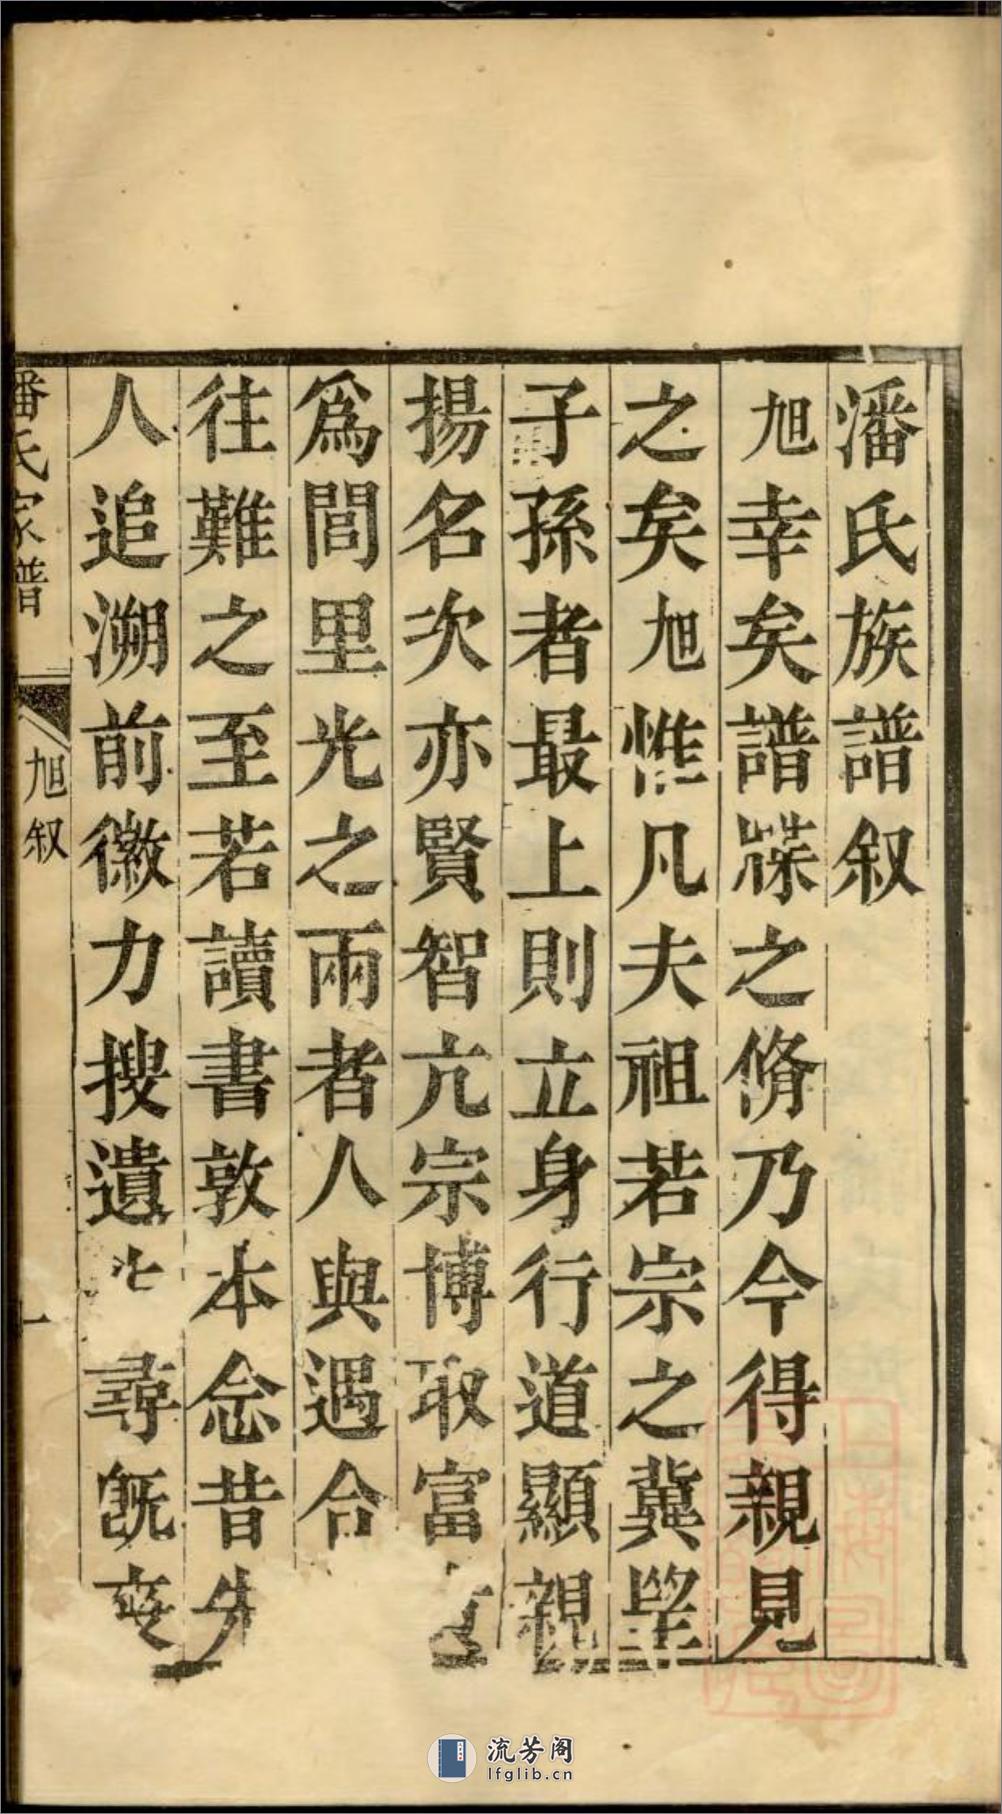 潘氏族譜叙
旭幸矣譜牒之脩乃今得親見
之矣旭惟凡夫祖若宗之冀望
子孫者最上則立身行道顯親
揚名次亦賢智亢宗博取富
爲閭里光之兩者人與遇合
往難之至若讀書敦本念昔先
人追溯前徽力搜遺尋旣
潘氏家譜
旭叙
一
流芳阁
lfglib.cn